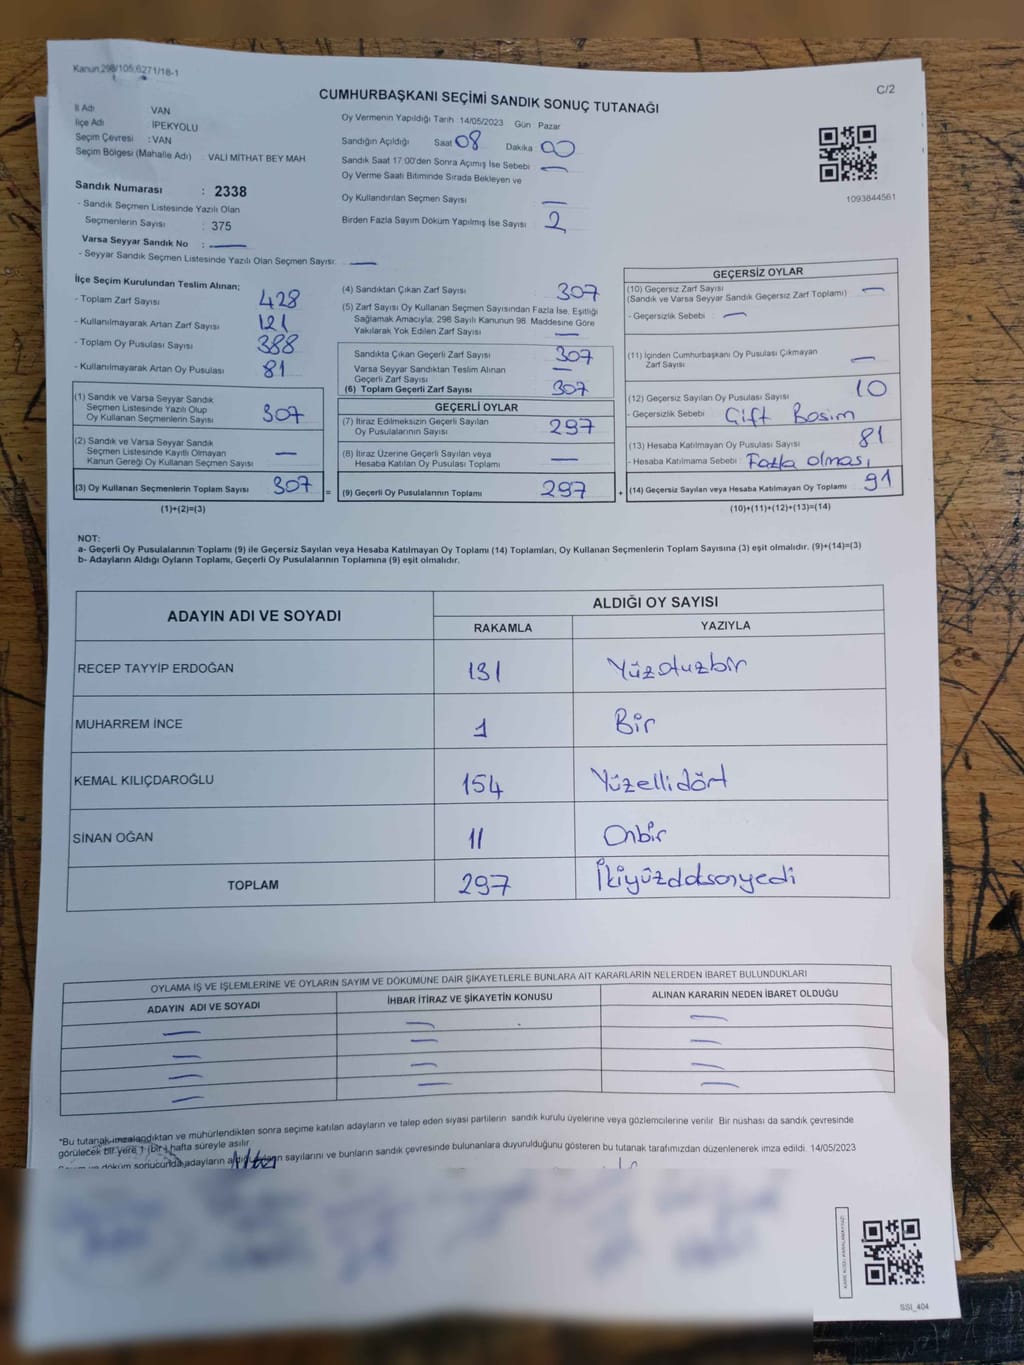 Kanun:298/105,6271/18-1
C/2
CUMHURBAŞKANI SEÇİMİ SANDIK SONUÇ TUTANAĞI
İl Adı VAN
İlçe Adı İPEKYOLU
Seçim Çevresi : VAN
Seçim Bölgesi (Mahalle Adı) : VALİ MİTHAT BEY MAH
Sandık Numarası : 2338
- Sandık Seçmen Listesinde Yazılı Olan
Seçmenlerin Sayısı : 375
Varsa Seyyar Sandık No : —
- Seyyar Sandık Seçmen Listesinde Yazılı Olan Seçmen Sayısı: —
Oy Vermenin Yapıldığı Tarih :14/05/2023 Gün : Pazar
Sandığın Açıldığı Saat 08 Dakika 00
Sandık Saat 17:00'den Sonra Açımış İse Sebebi —
Oy Verme Saati Bitiminde Sırada Bekleyen ve
Oy Kullandırılan Seçmen Sayısı —
Birden Fazla Sayım Döküm Yapılmış İse Sayısı : 2
1093844561
İlçe Seçim Kurulundan Teslim Alınan;
- Toplam Zarf Sayısı 428
- Kullanılmayarak Artan Zarf Sayısı 121
- Toplam Oy Pusulası Sayısı 388
- Kullanılmayarak Artan Oy Pusulası 81
(1) Sandık ve Varsa Seyyar Sandık
Seçmen Listesinde Yazılı Olup
Oy Kullanan Seçmenlerin Sayısı 307
(2) Sandık ve Varsa Seyyar Sandık
Seçmen Listesinde Kayıtlı Olmayan
Kanun Gereği Oy Kullanan Seçmen Sayısı —
(3) Oy Kullanan Seçmenlerin Toplam Sayısı 307 =
(1)+(2)=(3)
(4) Sandıktan Çıkan Zarf Sayısı 307
(5) Zarf Sayısı Oy Kullanan Seçmen Sayısından Fazla İse, Eşitliği
Sağlamak Amacıyla; 298 Sayılı Kanunun 98. Maddesine Göre
Yakılarak Yok Edilen Zarf Sayısı —
Sandıkta Çıkan Geçerli Zarf Sayısı 307
Varsa Seyyar Sandıktan Teslim Alınan
Geçerli Zarf Sayısı —
(6) Toplam Geçerli Zarf Sayısı 307
GEÇERLİ OYLAR
(7) İtiraz Edilmeksizin Geçerli Sayılan
Oy Pusulalarının Sayısı 297
(8) İtiraz Üzerine Geçerli Sayılan veya
Hesaba Katılan Oy Pusulası Toplamı —
(9) Geçerli Oy Pusulalarının Toplamı 297 +
GEÇERSİZ OYLAR
(10) Geçersiz Zarf Sayısı —
(Sandık ve Varsa Seyyar Sandık Geçersiz Zarf Toplamı)
- Geçersizlik Sebebi : —
(11) İçinden Cumhurbaşkanı Oy Pusulası Çıkmayan
Zarf Sayısı —
(12) Geçersiz Sayılan Oy Pusulası Sayısı 10
- Geçersizlik Sebebi Çift Basım
(13) Hesaba Katılmayan Oy Pusulası Sayısı 81
- Hesaba Katılmama Sebebi : Fazla olması
(14) Geçersiz Sayılan veya Hesaba Katılmayan Oy Toplamı 91
(10)+(11)+(12)+(13)=(14)
NOT:
a- Geçerli Oy Pusulalarının Toplamı (9) ile Geçersiz Sayılan veya Hesaba Katılmayan Oy Toplamı (14) Toplamları, Oy Kullanan Seçmenlerin Toplam Sayısına (3) eşit olmalıdır. (9)+(14)=(3)
b- Adayların Aldığı Oyların Toplamı, Geçerli Oy Pusulalarının Toplamına (9) eşit olmalıdır.
ADAYIN ADI VE SOYADI ALDIĞI OY SAYISI
RAKAMLA YAZIYLA
RECEP TAYYİP ERDOĞAN 131 Yüzotuzbir
MUHARREM İNCE 1 Bir
KEMAL KILIÇDAROĞLU 154 Yüzellidört
SİNAN OĞAN 11 Onbir
TOPLAM 297 İkiyüzdoksanyedi
OYLAMA İŞ VE İŞLEMLERİNE VE OYLARIN SAYIM VE DÖKÜMÜNE DAİR ŞİKAYETLERLE BUNLARA AİT KARARLARIN NELERDEN İBARET BULUNDUKLARI
ADAYIN ADI VE SOYADI İHBAR İTİRAZ VE ŞİKAYETİN KONUSU ALINAN KARARIN NEDEN İBARET OLDUĞU
— — —
— — —
— — —
— — —
—
*Bu tutanak imzalandıktan ve mühürlendikten sonra seçime katılan adayların ve talep eden siyasi partilerin sandık kurulu üyelerine veya gözlemcilerine verilir. Bir nüshası da sandık çevresinde
görülecek bir yere 1 (bir) hafta süreyle asılır.
döküm sonucunda adayların aldığı oyların sayılarını ve bunların sandık çevresinde bulunanlara duyurulduğunu gösteren bu tutanak tarafımızdan düzenlenerek imza edildi. 14/05/2023
KARE KODU KARALAMAYINIZ!
SSI_404